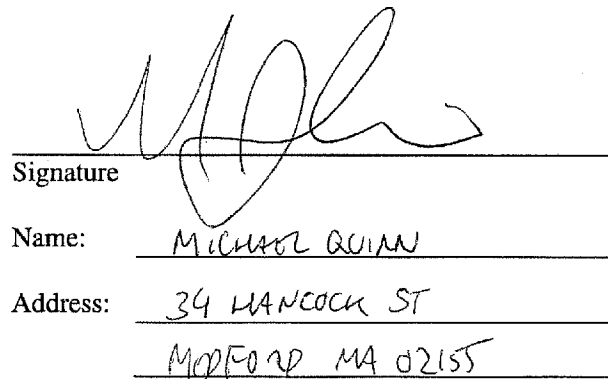 Signature
Name: MICHAEL QUINN
Address: 34 HANCOCK ST
MEDFORD MA 02155